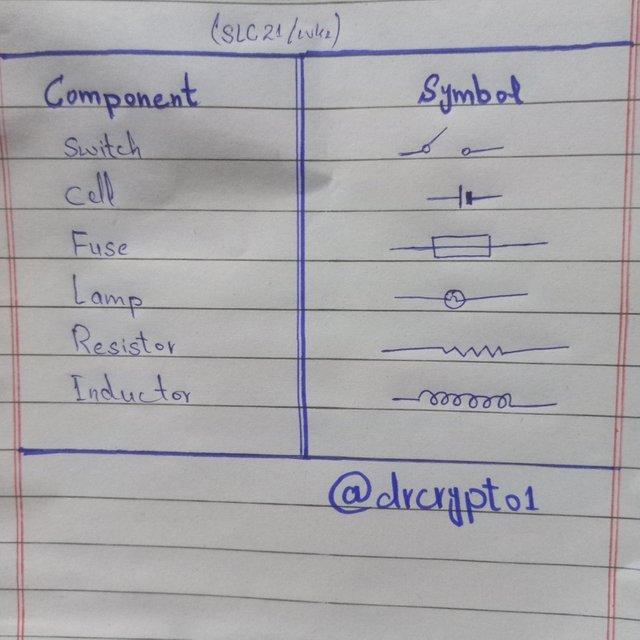 (SLC21/wk2)
Component Symbol
Switch
Cell
Fuse
Lamp
Resistor
Inductor
@drcrypto1